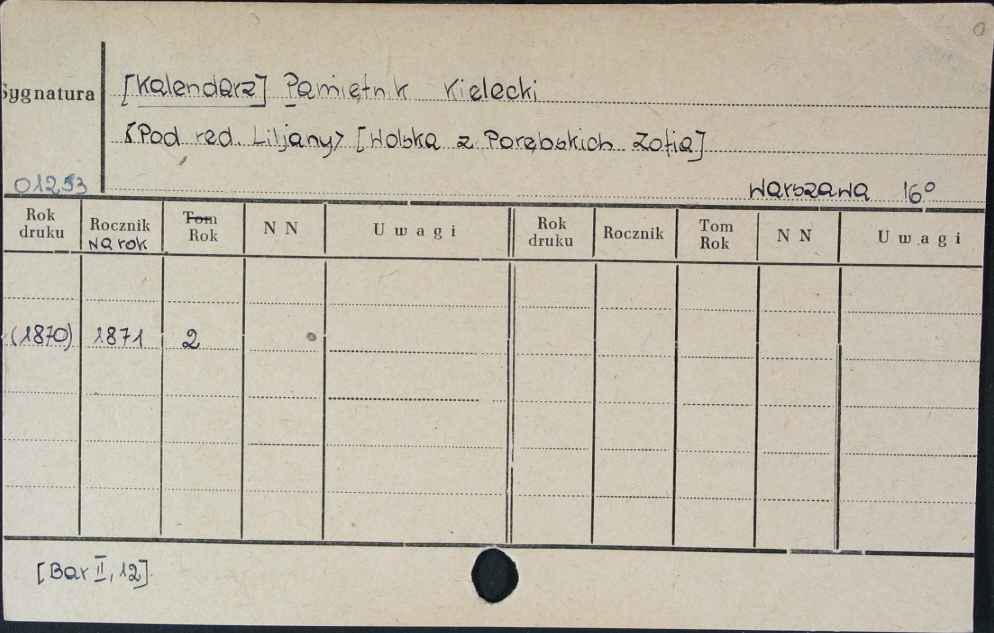 Sygnatura [Kalendarz] Pamiętnik Kielecki
<Pod red. Liljany> [Wolska z Porębskich Zofia]
01253 Warszawa 16°
Rok druku Rocznik na rok Tom Rok N N Uwagi Rok druku Rocznik Tom Rok N N Uwagi
(1870) 1871 2
[Bar II, 12]